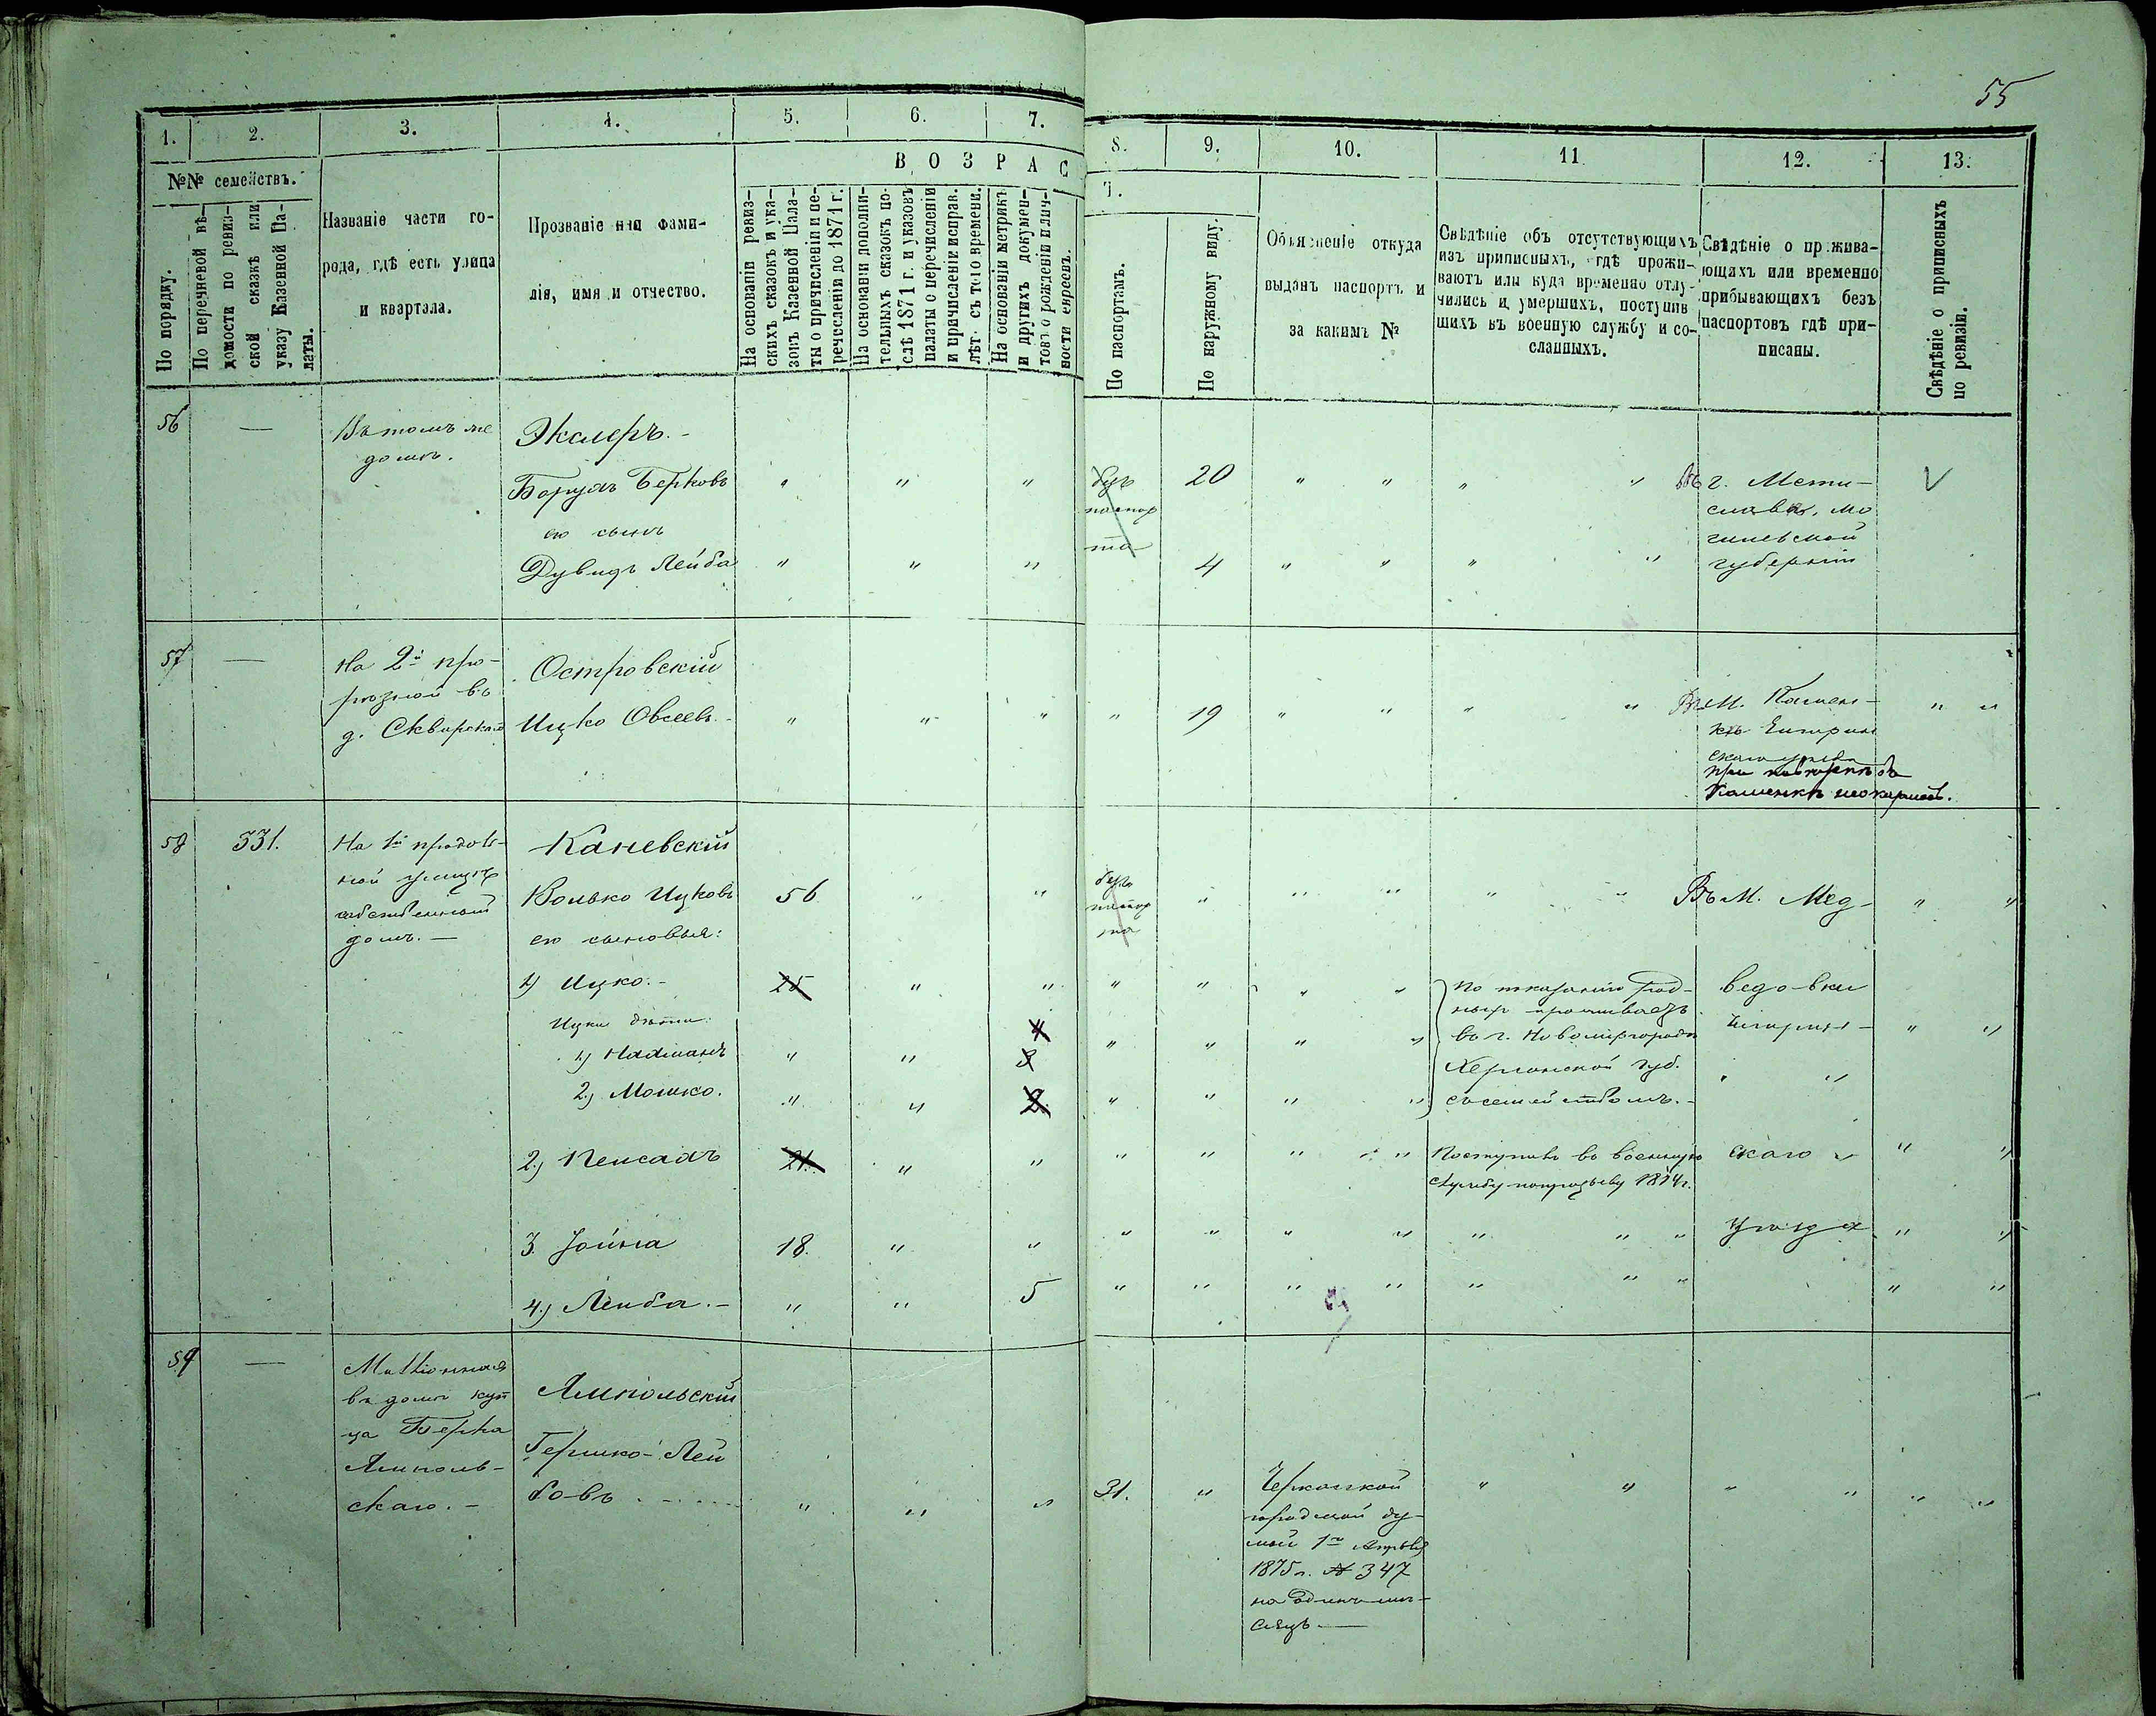 55
1. 2. 3. 4. 5. 6. 7. 8. 9. 10. 11 12. 13.
№№ семействъ.
ВОЗРАСТ.
По порядку.
По перечневой вѣ-
домости по ревиз-
ской сказкѣ или
указу Казенной Па-
латы.
Названіе части го-
рода, гдѣ есть улица
и квартала.
Прозваніе или фами-
лія, имя и отчество.
На основаніи ревиз-
скихъ сказокъ и ука-
зовъ Казенной Пала-
ты о причисленіи и пе-
речисленіи до 1871 г.
На основаніи дополни-
тельныхъ сказокъ по-
слѣ 1871 г. и указовъ
палаты о перечисленіи
и причисленіе исправ.
лѣт. съ того времени.
На основаніи метрикъ
и другихъ докумен-
товъ о рожденіи и лич-
ности евреевъ.
По паспортамъ.
По наружному виду.
Объясненіе откуда
выданъ паспортъ и
за какимъ №
Свѣдѣніе объ отсутствующихъ
изъ приписныхъ, гдѣ прожи-
ваютъ или куда временно отлу-
чились и умершихъ, поступив
шихъ въ военную службу и со-
сланныхъ.
Свѣдѣніе о прожива-
ющихъ или временно
прибывающихъ безъ
паспортовъ гдѣ при-
писаны.
Свѣдѣніе о приписныхъ
по ревизіи.
56 —
Въ томъ же
домѣ.
Экслеръ.-
Борухъ Берковъ " " "
его сынъ
Дувидъ Лейба " " "
безъ
паспор
та
20 " " " "
4 " " " "
Въ г. Мсти-
славлѣ, Мо
гилевской
губерніи
V
57 —
На 2й про-
рѣзной въ
д. Сквирскаго
Островскій
Ицко Овсеевъ.- " " " " 19 " " " "
Въ М. Камен-
кѣ Чигирин
скаго уѣзда
при повѣркѣ въ
Каменкѣ не оказался.
" "
58 331.
На 1й продоль-
ной улицѣ
собственный
домъ. —
Каневскій
Волько Ицковъ 56 " "
безъ
паспор
та
" " " " "
Въ М. Мед- " "
его сыновья:
1) Ицко.- 25 " " " " " "
Ицки дѣти:
1) Нахманъ " " 3 4 " " " "
2.) Мошко. " " 2. " " " "
по показанію род-
ныхъ проживаетъ
въ г. Новомиргородѣ
Херсонской губ.
съ семействомъ.-
ведовки
Чигирин- " "
" "
2.) Пейсахъ 21. " " " " " "
Поступилъ въ военную
службу по призыву 1874 г.
скаго " " "
3. Іойна 18. " " " " " " " " "
уѣзда " "
4.) Лейба.- " " 5 " " " " " " " " "
59 —
Милліонная
въ домѣ куп
ца Берка
Ямполь-
скаго.-
Ямпольскій
Гершко-Лей
бовъ " " " 31. "
Черкаской
городской ду-
мой 1го Апрѣля
1875 г. № 347
на одинъ мѣ-
сяцъ —
" " " " " "